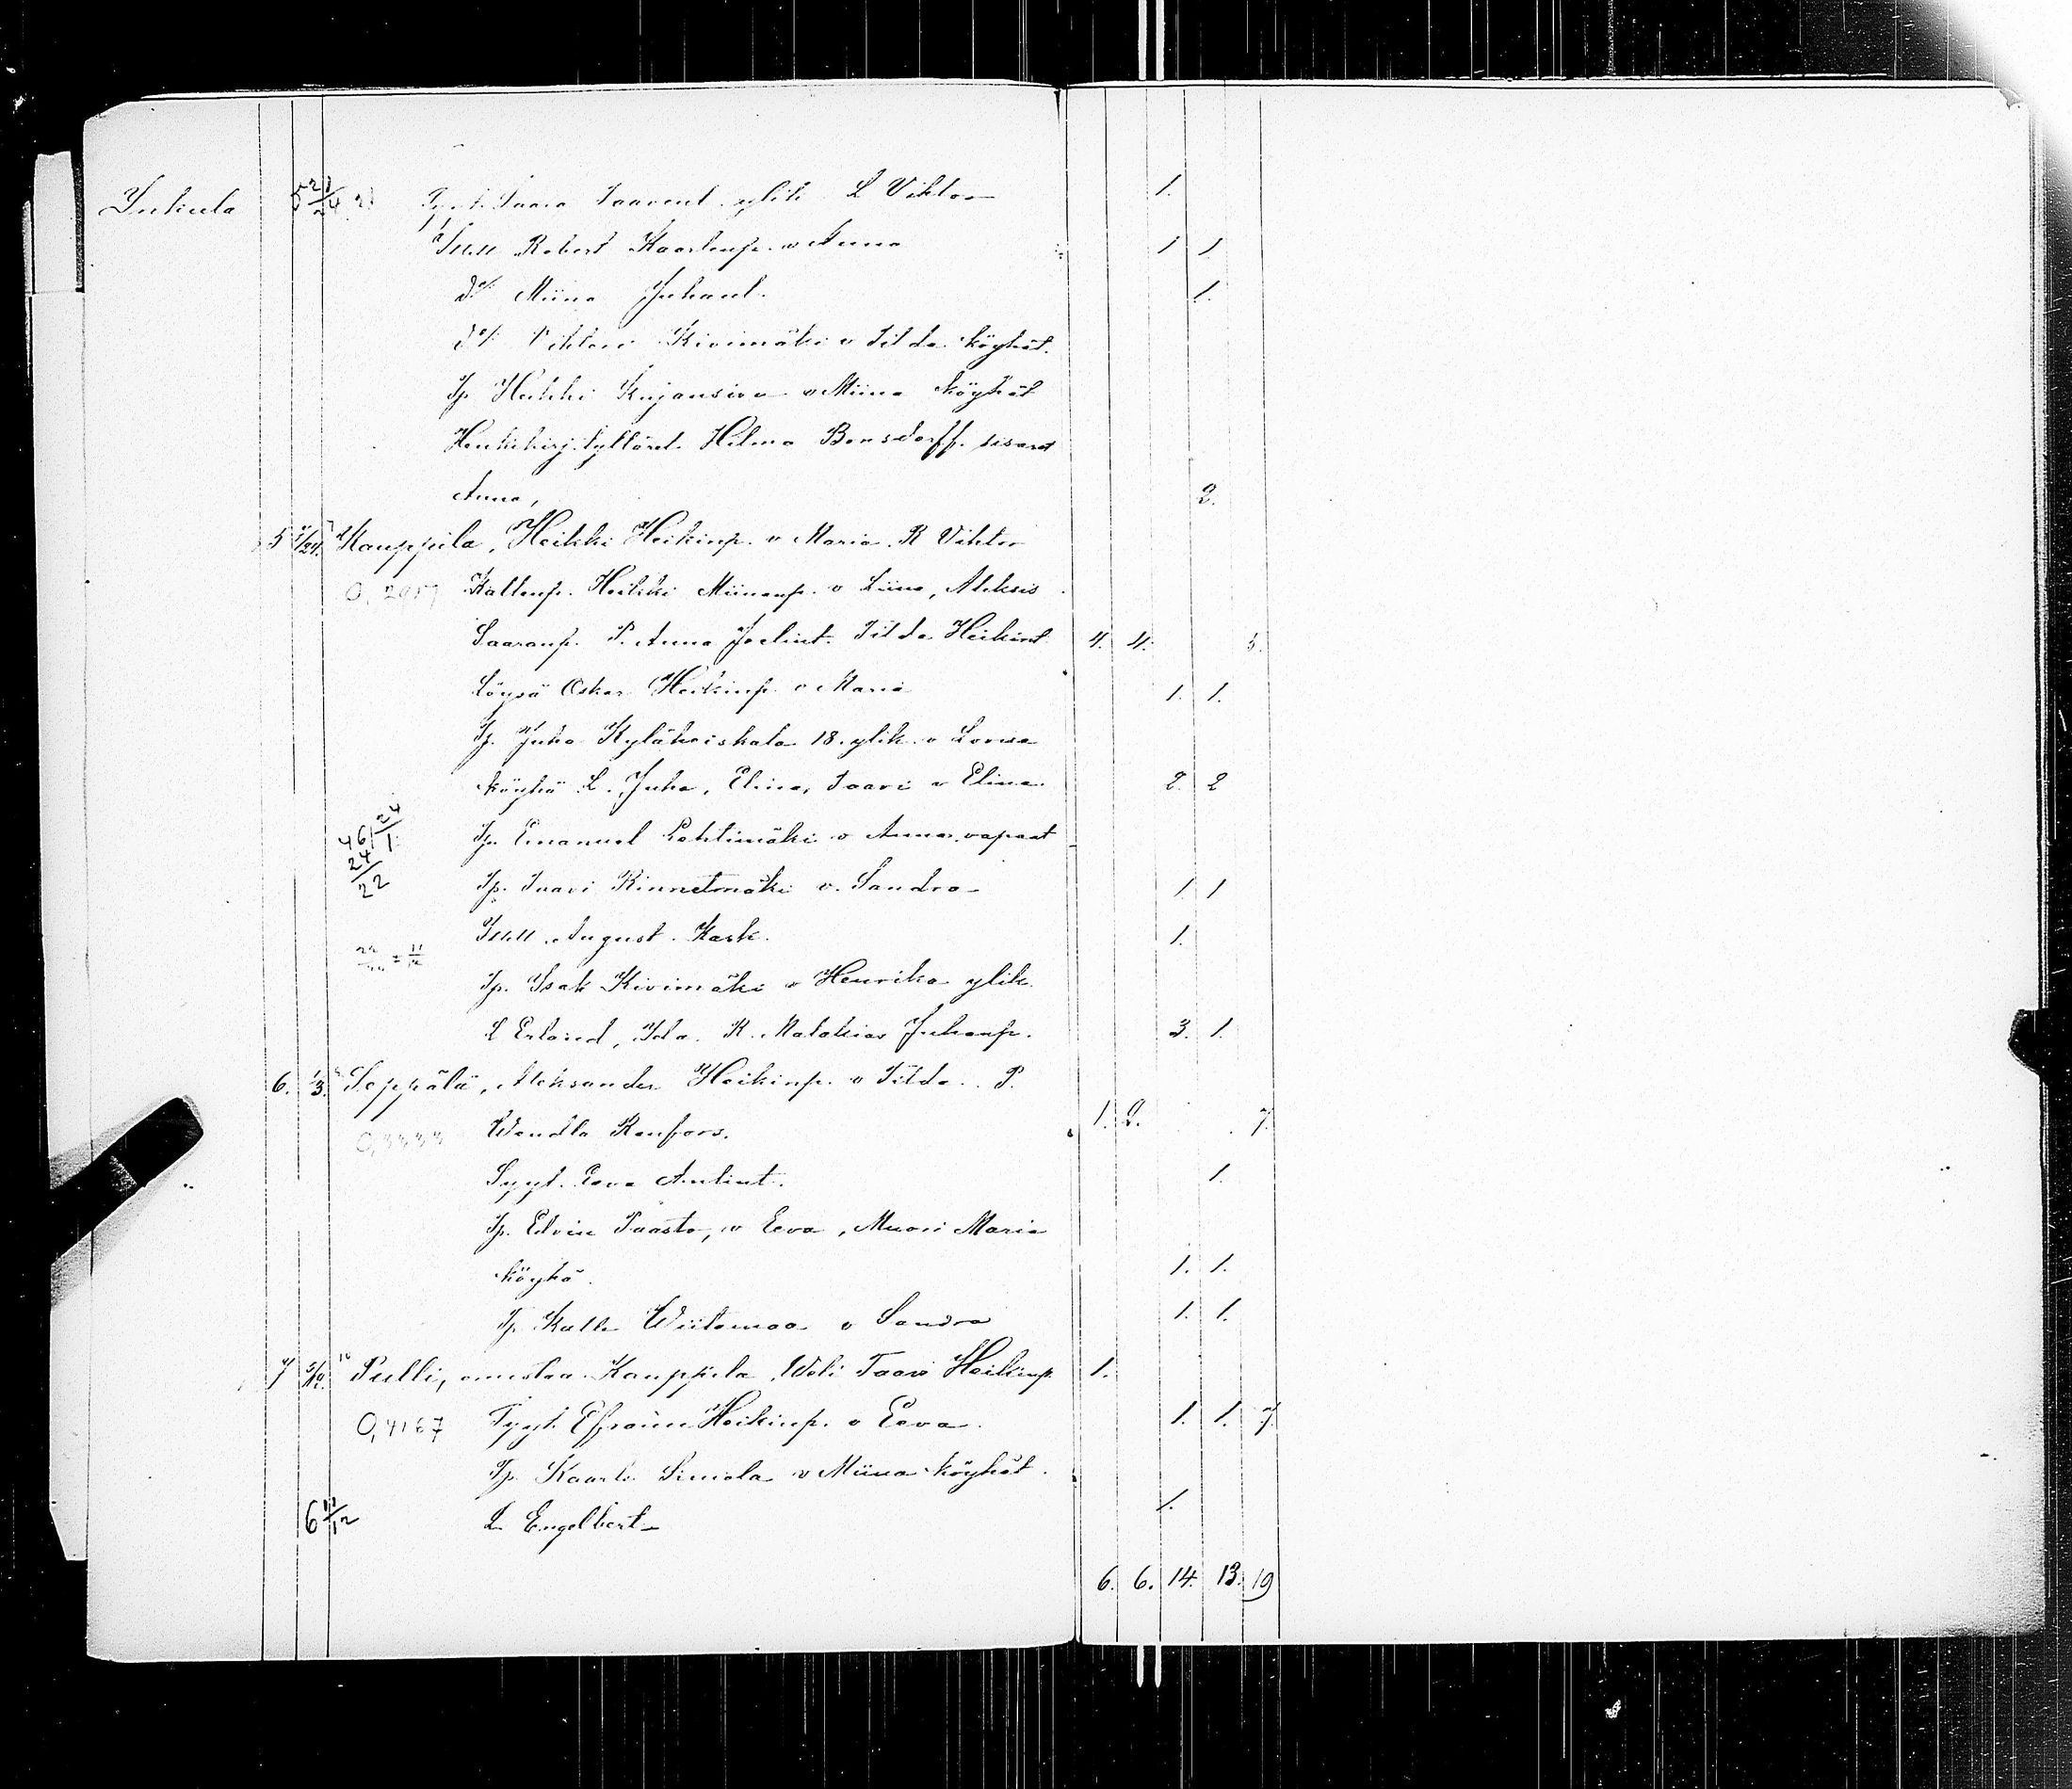 Jukula 5 21/24 Tyyt. Saara Taavent. ylik L Viktor 1.
Itell. Robert Kaarlenp. v Anna 1 1.
do Miina Juhant. 1.
do Viktori Kivimäki v Tilda köyhät.
Tp. Heikki Kujansivu v Miina köyhät
Henkikirj. tyttäret Hilma Bonsdorff. sisaret
Anna, 2.
5 7/24. Kauppila, Heikki Heikinp. v Maria. R Viktor
0,2917 Kallenp. Heikki Miinanp. v Liina, Aleksis
Saaranp. P. Anna Joelint. Tilda Heikint. 4. 4. 5.
Löysä Oskar Heikinp. v Maria 1. 1.
Tp. Juho Kyläkoiskala 18. ylik. v Lovisa
köyhä L. Juho, Elina, Taavi v Elina. 2. 2
Tp. Emanuel Lahtimäki v Anna. vapaat
46/24 1.
24/22
Tp. Taavi Kinnetmäki v. Sandra 1. 1
Itell. August. Kask. 1.
22/24 = 11/12
Tp. Isak Kivimäki v Henrika ylik.
L Erland, Ida. K. Malakias Juhanp. 3. 1.
6. 1/3. Seppälä, Aleksander Heikinp. v Tilda. P.
0,3333 Wendla Renfors. 1. 2. 7.
Tyyt. Eeva Antint. 1.
Tp. Edvin Paasto, v Eeva, Muori Maria
köyhä. 1. 1.
Tp. Kalle Wiitamaa v Sandra 1. 1.
7 5/12. Pulli, omistaa Kauppila, Weli Taavi Heikinp. 1.
0,4167 Tyyt. Efraim Heikinp. v Eeva. 1. 1. 7.
Tp. Kaarlo Simola v Miina köyhät.
6 11/12 L Engelbert 1.
6. 6. 14. 13. 19